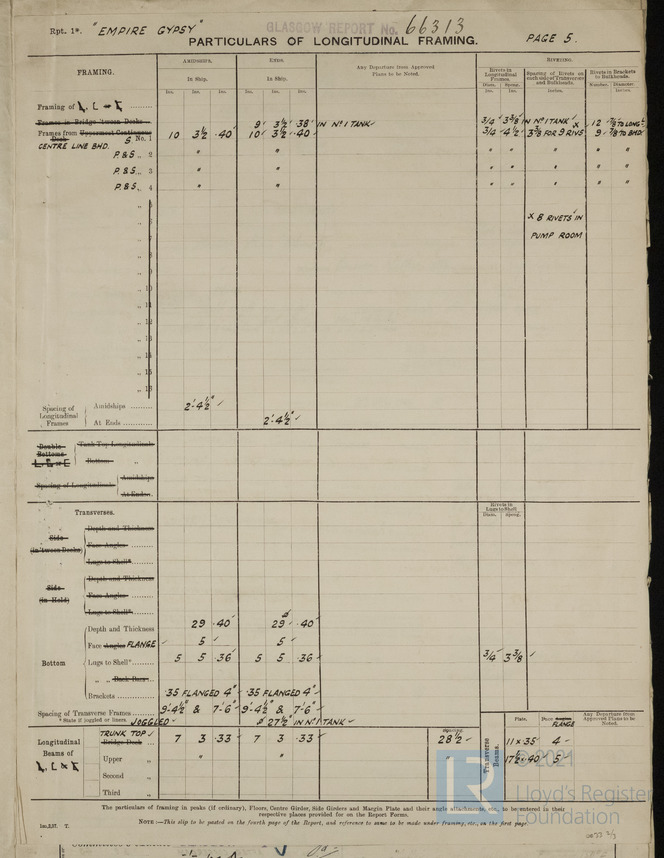 Rpt. 1*. "EMPIRE GYPSY" GLASGOW REPORT No. 66313
PARTICULARS OF LONGITUDINAL FRAMING. PAGE 5.
FRAMING. AMIDSHIPS. ENDS. Any Departure from Approved Plans to be Noted. RIVETING.
In Ship. In Ship. Rivets in Longitudinal Frames. Spacing of Rivets on each side of Transverses and Bulkheads. Rivets in Brackets to Bulkheads.
Ins. Ins. Ins. Ins. Ins. Ins. Diam. Spcng. Inches. Number. Diameter.
Framing of
Frames in Bridge 'tween Decks 9 3½ .38 IN No 1 TANK 3/4 3⅜ IN No 1 TANK 12 ⅞ TO LONG
Frames from Uppermost Continuous Deck S No. 1 10 3½ .40 10 3½ .40 3/4 4½ 3⅜ FOR 9 RIVS 9 ⅞ TO BHD.
CENTRE LINE BHD.
P.&S. „ 2 " " " " " " "
P.&S. „ 3 " " " " " " "
P.&S. „ 4 " " " " " " "
„ 5
„ 6 x 8 RIVETS IN
„ 7 PUMP ROOM
„ 8
„ 9
„ 10
„ 11
„ 12
„ 13
„ 14
„ 15
„ 16
Spacing of Longitudinal Frames Amidships 2'-4½"
At Ends 2'-4½"
Double Bottoms Tank Top Longitudinals
Bottom „
Spacing of Longitudinals Amidships
At Ends
Transverses. Rivets in Lugs to Shell
Diam. Spcng.
Side (in 'tween Decks) Depth and Thickness
Face Angles
Lugs to Shell*
Side (in Hold) Depth and Thickness
Face Angles
Lugs to Shell*
Bottom Depth and Thickness 29 .40 29 .40
Face Angles FLANGE 5 5
Lugs to Shell* 5 5 .36 5 5 .36 3/4 3⅜
„ „ Back Bars
Brackets .35 FLANGED 4" .35 FLANGED 4"
Spacing of Transverse Frames 9'-4½" & 7'-6" 9'-4½" & 7'-6"
* State if joggled or liners JOGGLED ø 27½" IN No 1 TANK
Plate. Face FLANGE Any Departure from Approved Plans to be Noted.
Longitudinal Beams of TRUNK TOP Bridge Deck 7 3 .33 7 3 .33 SPACING 28½ Transverse Beams. 11 x .35 4
Upper „ " " " 17½ x .40 5
Second „
Third „
© 2021
Lloyd's Register
Foundation
The particulars of framing in peaks (if ordinary), Floors, Centre Girder, Side Girders and Margin Plate and their angle attachments, etc., to be entered in their
respective places provided for on the Report Forms.
NOTE:—This slip to be posted on the fourth page of the Report, and reference to same to be made under framing, etc., on the first page.